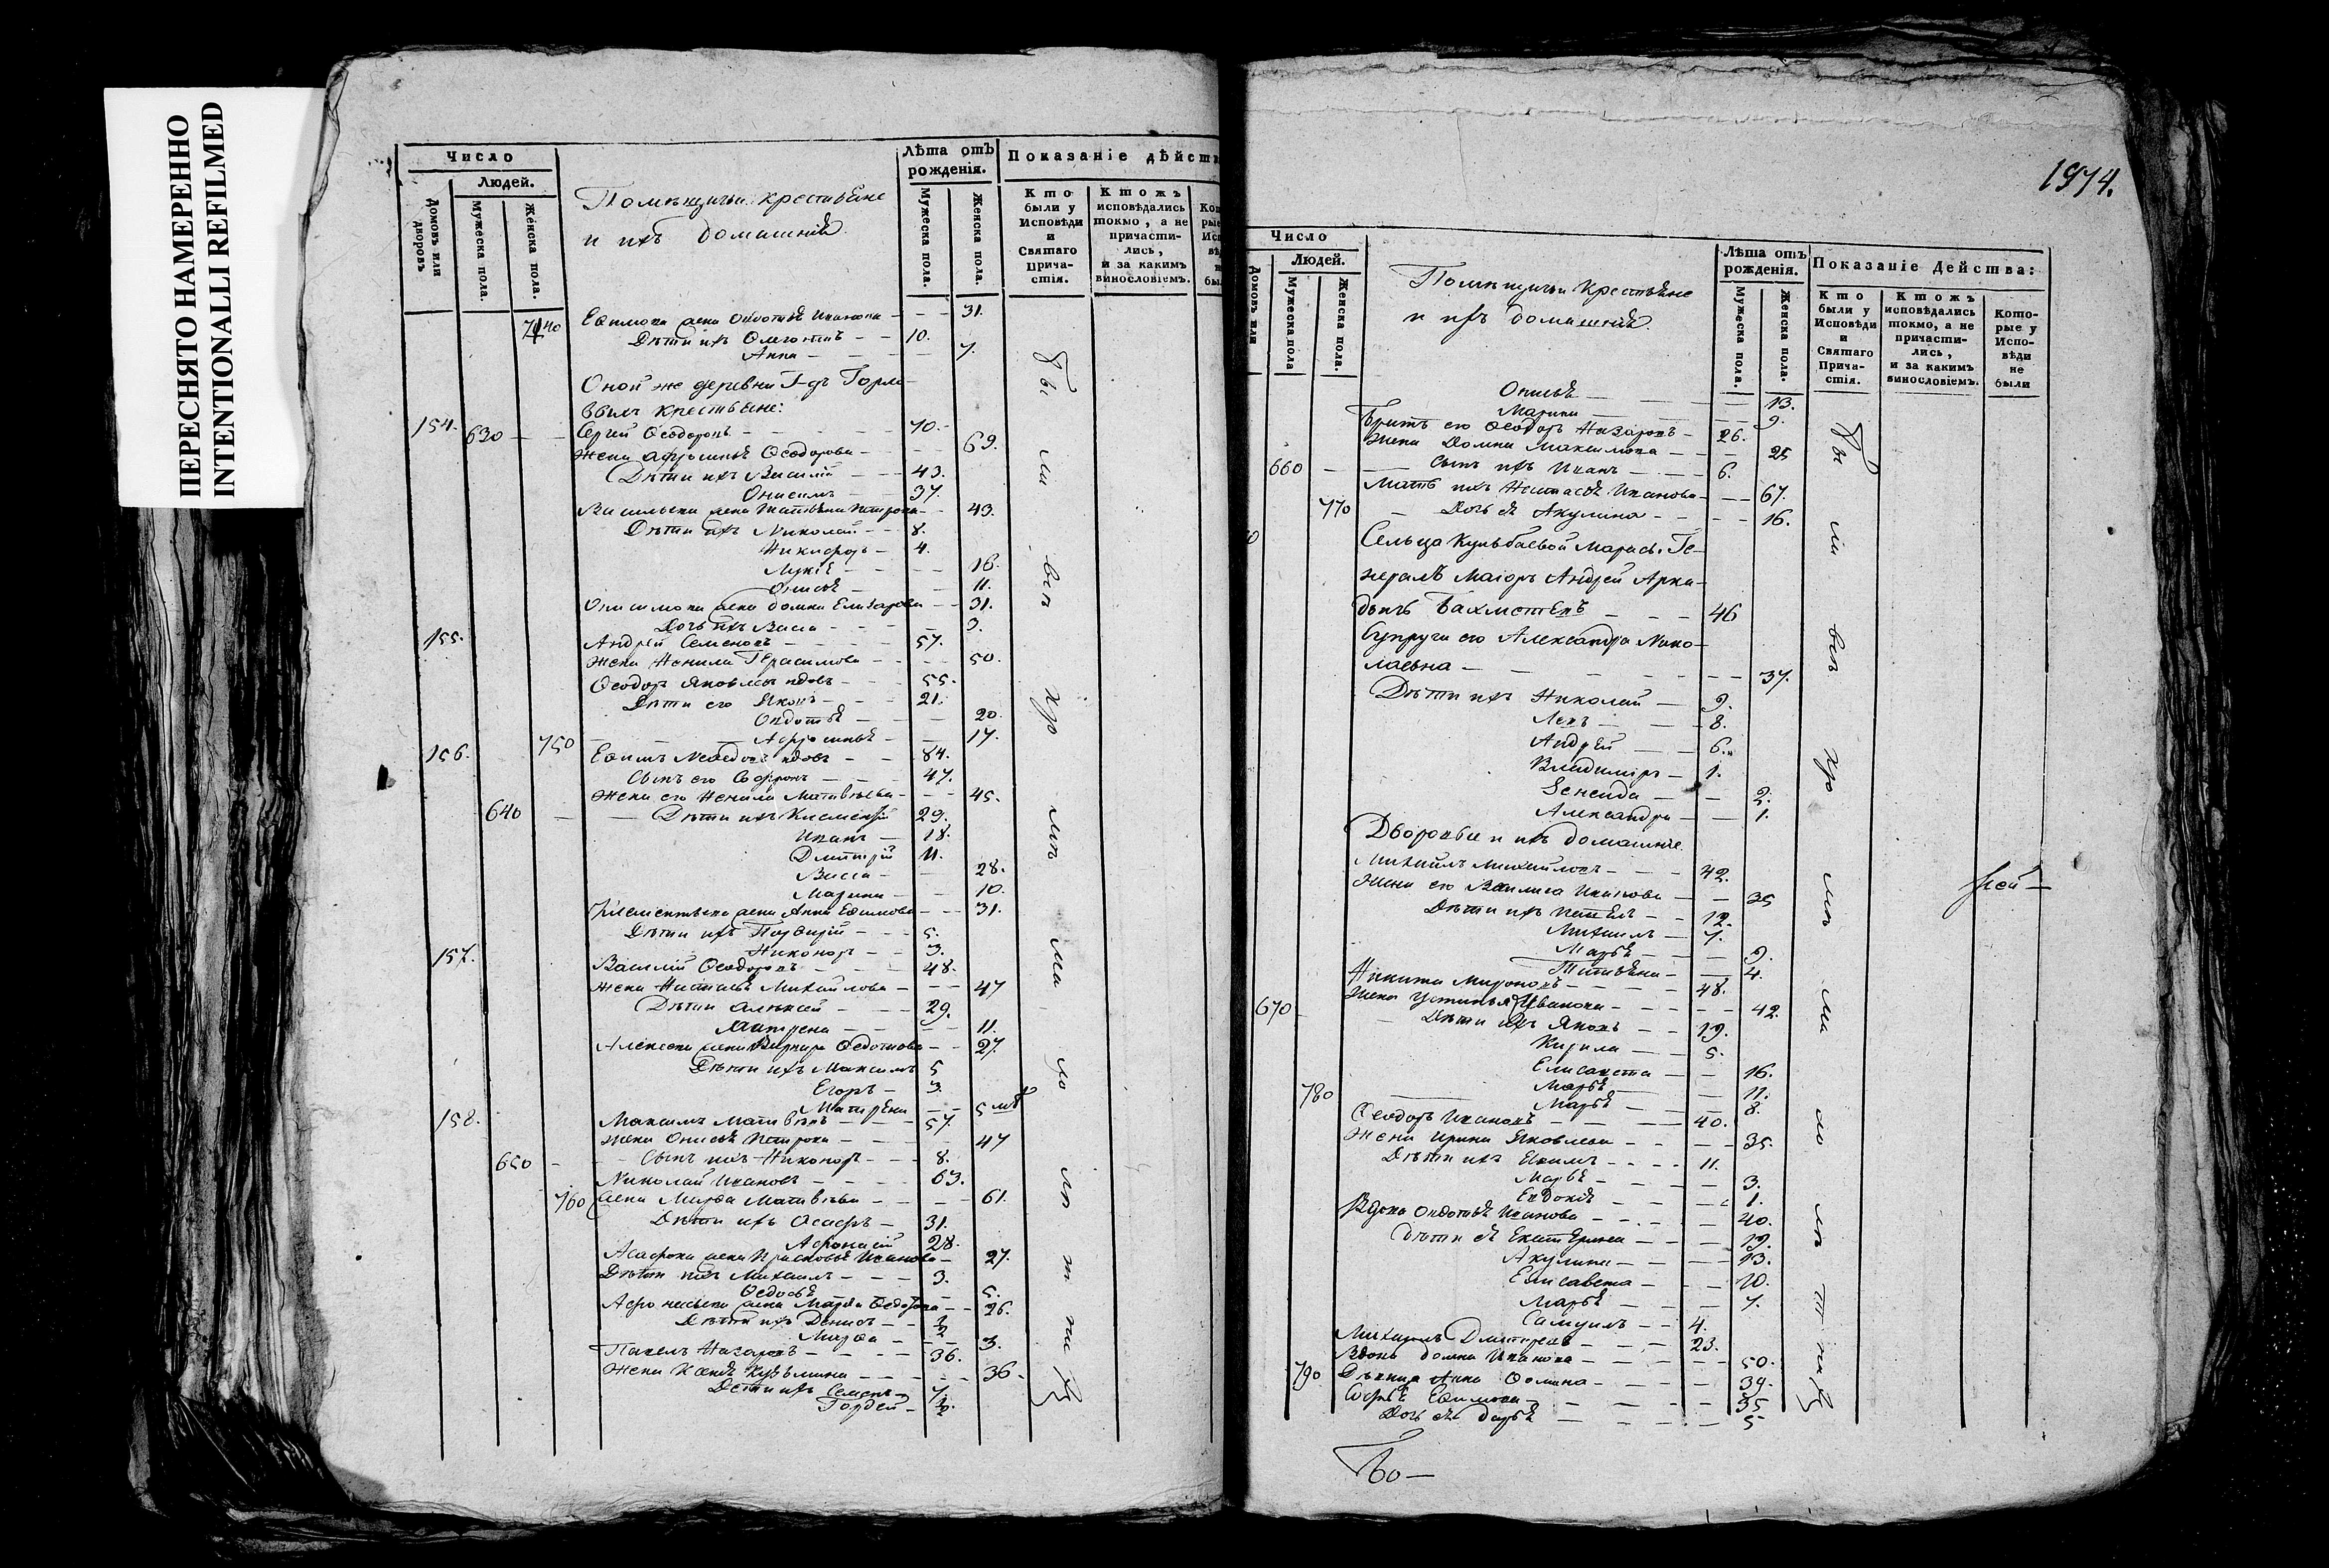 ПЕРЕСНЯТО НАМЕРЕННО
INTENTIONALLI REFILMED
Число
Людей.
Домовъ или дворовъ
Мужеска пола.
Женска пола.
Помѣщичьи крестьяне
и ихъ домашнія
Лѣта отъ рожденія.
Мужеска пола.
Женска пола.
Показаніе дѣйств
Кто были у Исповѣди и Святаго Прича-стія.
Ктожъ исповѣдались токмо, а не причасти-лись, и за какимъ винословіемъ.
740 Ефимова жена Овдотья Иванова — — 31.
Дѣти ихъ — — 10.
Анна — — 7.
Оной же деревни Г-дъ
крестьяне:
154. 630 — — Сергей Ѳеодоровъ — — 70.
Жена Афросинья Ѳеодорова — — 69.
Дѣти ихъ Василій — — 43.
Онисимъ — — 37.
Васильева жена Татьяна Петрова — — 43.
Дѣти ихъ Николай — — 8.
Никифоръ — 4.
Лукія — — 16.
Онисья — — 11.
Онисимова жена Домна Елизарова — — 31.
Дочь ихъ Васса — — 3.
155. Андрей Семеновъ — — 57.
Жена Ненила Герасимова — — 50.
Ѳеодоръ Яковлевъ вдовъ — — 55.
Дѣти его Яковъ — — 21.
Овдотья — — 20.
750 Афросинья — — 17.
156. Ефимъ вдовъ — — 84.
Сынъ его Софронъ — — 47.
Жена его Ненила Матвѣева — — 45.
640 — — Дѣти ихъ Климентій 29.
Иванъ — 18.
Дмитрій 11.
Васса — — 28.
Марина — — 10.
Климентьева жена Анна Ефимова — — 31.
Дѣти ихъ Порфирій — — 5.
Никоноръ — — 3.
157. Василій Ѳеодоровъ — — 48.
Жена Настасья Михайлова — — 47
Дѣти Алексѣй — — 29.
Матрена — — 11.
Алексеева жена Варвара Ѳедотова — — 27.
Дѣти ихъ Максимъ 5
Егоръ — 3.
Матрена — — 5 мѣ
158. Максимъ Матвѣевъ — — 57.
Жена Онисья Петрова — — 47
650 — — Сынъ ихъ Никоноръ — — 8.
Николай Ивановъ — — 63.
760 Жена Марфа Матвѣева — — 61.
Дѣти ихъ Осафъ — 31.
Афонасій 28.
Асафова жена Прасковья Иванова — 27.
Дѣти ихъ Михаилъ — — 3.
Ѳедосья — 5.
Афонасьева жена Марья Ѳедорова — — 26.
Дѣти ихъ Денисъ — — 2
Марфа — — 3.
Павелъ Назаровъ — — 36.
Жена Ксенья Кузьмина — — 36.
Дѣти ихъ Семенъ — 7.
Гордей — 2.
Бы
ли
вси
хро
мѣ
ма
ло
лѣ
т
ны
хъ
1974.
Число
Людей.
Домовъ или
Мужеска пола
Женска пола.
Помѣщичьи Крестьяне
и ихъ домашнія
Лѣта отъ рожденія.
Мужеска пола.
Женска пола.
Показаніе Действа:
Кто были у Исповѣди и Святаго Прича-стія.
Ктожъ исповѣдались токмо, а не причасти-лись, и за какимъ винословіемъ.
Кото-рые у Испо-вѣди не были
Онисья — — 13.
Марина — — 9.
Братъ его Ѳеодоръ Назаровъ — 26.
Жена Домна Максимова — — 25
660 — — Сынъ ихъ Иванъ — — 6.
Мать ихъ Настасья Иванова — — 67.
770 — Дочь ея Акулина — — 16.
Сельца Кульбаевой Маріи. Ге-
нералъ Маіоръ Андрей Арка-
дьевъ Бахметевъ — — 46
Супруга его Александра Нико-
лаевна — — 37.
Дѣти ихъ Николай — 9.
Левъ — — 8.
Андрей — — 6.
Владиміръ — 1.
Зенеида — — 2.
Александра — — 1.
Дворовые и ихъ домашніе
Михаилъ Михайловъ — — 42.
Жена его Василиса Иванова — — 35
Дѣти ихъ Павелъ — — 12.
Михаилъ — 7.
Марья — — 9.
Татьяна — — 4.
Никита Мироновъ — — 48.
Жена Устинья Иванова — — 42.
670 — Дѣти ихъ Яковъ — — 19.
Кирила — — 5.
Елисавета — — 16.
Марья — — 11.
780 Марья — — 8.
Ѳеодоръ Ивановъ — — 40.
Жена Ирина Яковлева — — 35.
Дѣти ихъ Ефимъ — — 11.
Марья — — 3.
Евдокія — — 1.
Вдова Овдотья Иванова — — 40.
Дѣти ея Екатерина — — 19.
Акулина — — 13.
Елисавета — — 10.
Марья — — 7.
Самуилъ — — 4.
Михаилъ Дмитріевъ — — 23.
Вдова Домна Иванова — — 50.
790 Дѣвица Анна Ѳомина — — 39.
Софья Ефимова — — 35
Дочь ея Дарья — — 5
Бы
ли
всѣ
хро
мѣ
ма
ло
лѣ
т
ны
хъ
рей —
Бо —